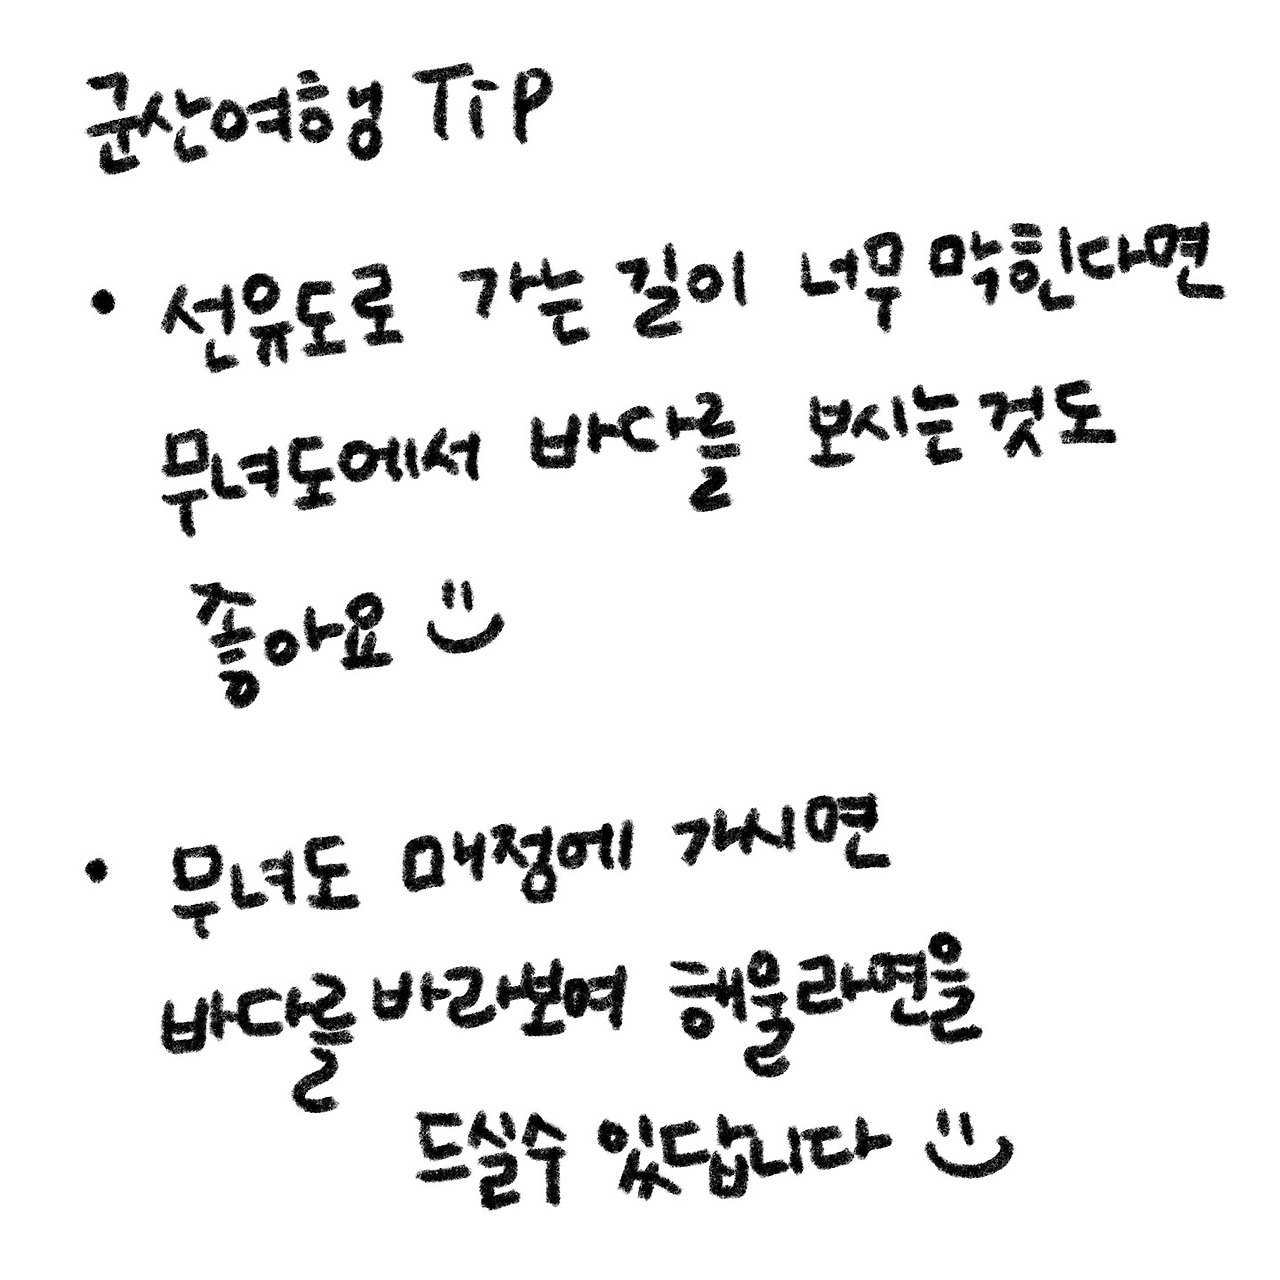 군산여행 TiP
• 선유도로 가는 길이 너무 막힌다면
무녀도에서 바다를 보시는것도
좋아요
• 무녀도 매점에 가시면
바다를 바라보며 해물라면을
드실수 있답니다